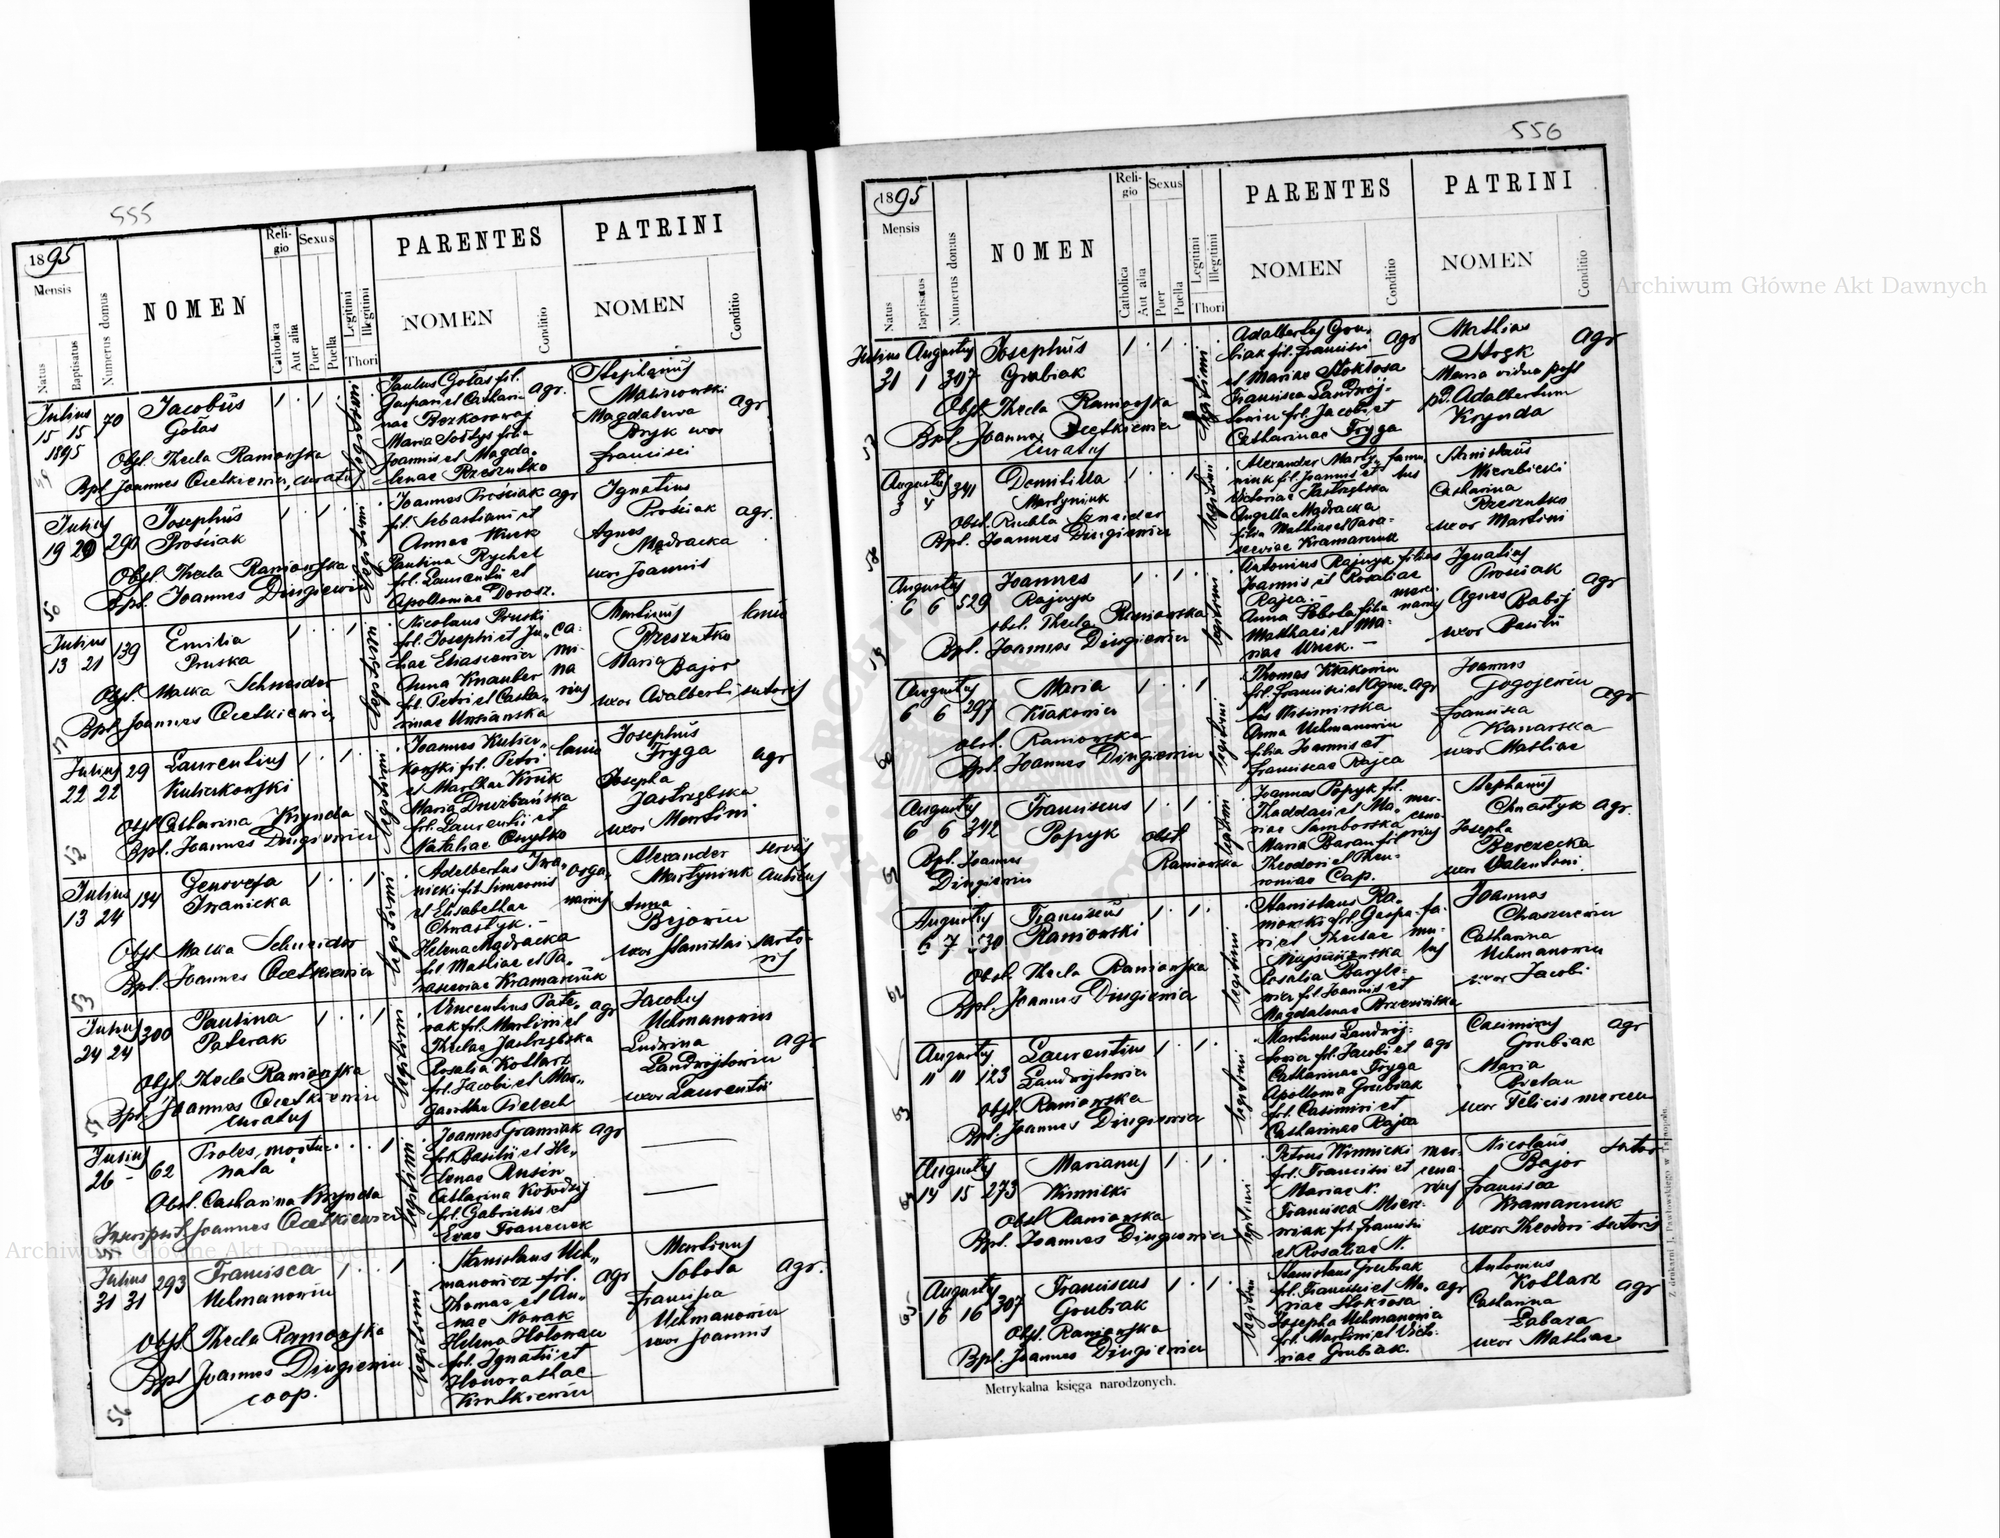 555
1895
Mensis
Natus
Baptisatus
Numerus domus
NOMEN
Religio
Catholica
Aut alia
Sexus
Puer
Puella
Legitimi
Illegitimi
Thori
PARENTES
NOMEN
Conditio
PATRINI
NOMEN
Conditio
Julius
15 15 70
1895
Jacobus
Gołas
Obst. Thecla Ramowska
Bpt. Joannes Ocetkiewicz, curatus
legitimi
Paulus Gołas fil.
Gaspari et Cathari- agr.
nae Bezkorowaj
Maria Sołtys filia
Joannis et Magda-
lenae Rzeszutko
Stephanus
Malinowski
Magdalena agr
Bryk uxor
Francisci
50
Julius
19 20 290
Josephus
Prośiak
Obst. Thecla Ramowska
Bpt. Joannes Dziugiewicz
legitimi
Joannes Prośiak agr
fil. Sebastiani et
Annae Wuek
Paulina Rychel
fil. Laurentii et
Apolloniae Dorosz.
Ignatius
Prośiak agr.
Agnes
Mądracka
uxor Joannis
Julius
13 21 139
Emilia
Pruska
Obst. Malka Schneider
Bpt. Joannes Ocetkiewicz
legitimi
Nicolaus Pruski
fil. Josephi et Ju- ca-
liae Eliasiewicz mi-
Anna Knauber na
fil. Petri et Catha- rius
rinae Ursianska
Martinus lanio
Rzeszutko
Maria Bajor
uxor Adalberti sutoris
52
Julius 29
22 22
Laurentius
Kulczkowski
Obst. Catharina Krynda
Bpt. Joannes Dziugiewicz
legitimi
Joannes Kulicz-
kowski fil. Petri lanio
et Marthae Kruk
Maria Druzbańska
fil. Laurentii et
Nataliae Czyżko
Josephus
Tryga agr
Josepha
Jastrzębska
uxor Martini
53
Julius 134
13 24
Genovefa
Iwanicka
Obst. Malka Schneider
Bpt. Joannes Ocetkiewicz
legitimi
Adelbertus Iwa- orga-
nicki fil. Simeonis narius
et Elisabethae
Chrastyk.
Helena Mądracka
fil. Mathiae et Pa-
rasceviae Kramarczuk
Alexander servus
Martyniuk aulicus
Anna
Bejowicz
uxor Stanislai sarto-
ris
Julius 300
24 24
Paulina
Paterak
Obst. Thecla Ramowska
Bpt. Joannes Ocetkiewicz
curatus
legitimi
Vincentius Pate- agr
rak fil. Martini et
Theclae Jastrzębska
Rosalia Kottarz
fil. Jacobi et Mar-
garethae Pielech
Jacobus
Uchmanowicz
Ludvina agr
Landwojtowicz
uxor Laurentii
Julius 62
26 -
Proles mortue
nata
Obst. Catharina Krynda
Inscripsit Joannes Ocetkiewicz
legitimi
Joannes Gramiak agr
fil. Basilii et He-
lenae Rusin
Catharina Kołodzij
fil. Gabrielis et
Evae Franczuk
Julius 293
31 31
Francisca
Uchmanowicz
Obst. Thecla Ramowska
Bpt. Joannes Dziugiewicz
coop.
56
legitimi
Stanislaus Uch-
manowicz fil. agr
Thomae et An-
nae Nowak
Helena Hołowacz
fil. Ignatii et
Honorathae
Krutkiewicz
Martinus
Sobota agr.
Francisca
Uchmanowicz
uxor Joannis
556
1895
Mensis
Natus
Baptisatus
Numerus domus
NOMEN
Religio
Catholica
Aut alia
Sexus
Puer
Puella
Legitimi
Illegitimi
Thori
PARENTES
NOMEN
Conditio
PATRINI
NOMEN
Conditio
Julius Augustus
31 1 307
Josephus
Grubiak
Obst. Thecla Ramowska
Bpt. Joannes Ocetkiewicz
curatus
57
legitimi
Adalbertus Gru-
biak fil. Francisci agr
et Mariae Stokłosa
Francisca Landwoj-
towicz fil. Jacobi et
Catharinae Tryga
Mathias agr
Stozk
Maria vidua post
p.d. Adalbertum
Krynda
Augustus 341
3 4
Domitilla
Martyniuk
Obst. Ruchla Sneider
Bpt. Joannes Dziugiewicz
58
legitimi
Alexander Marty- famu-
niuk fil. Joannis et lus
Victoriae Jastrzębska
Angella Mądracka
filia Mathiae et Para-
sceviae Kramarczuk
Stanislaus
Mierzbicki
Catharina
Rzeszutko
uxor Martini
Augustus
6 6 529
Joannes
Rajczyk
obst. Thecla Ramowska
Bpt. Joannes Dziugiewicz
59
legitimi
Antonius Rajczyk filius
Joannis et Rosaliae
Rajca.- merce-
Anna Sobota filia narius
Matthaei et Ma-
riae Wuek.
Ignatius
Prośiak agr
Agnes Babij
uxor Basilii
Augustus
6 6 297
Maria
Kłakowicz
obst. Ramowska
Bpt. Joannes Dziugiewicz
60
legitimi
Thomas Kłakowicz
fil. Francisci et Agne- agr
tis Wisniowska
Anna Uchmanowicz
filia Joannis et
Franciscae Rajca
Joannes
Gogojewicz
Francisca agr
Kanarska
uxor Mathiae
Augustus
6 6 342
Franciscus
Popyk obst.
Bpt. Joannes Ramowska
Dziugiewicz
legitimi
Joannes Popyk fil.
Thaddaei et Ma- mer-
riae Samborska cena-
Maria Baran fil. rius
Theodori et Theu-
roniae Cap.
Stephanus
Chrastyk agr.
Josepha
Berezecka
uxor Valentini
Augustus
6 7 530
Franciscus
Ramowski
Obst. Thecla Ramowska
Bpt. Joannes Dziugiewicz
62
legitimi
Stanislaus Ra-
mowski fil. Gaspa- fa-
ri et Theclae mu-
Niepsianska lus
Rosalia Baryle-
wicz fil. Joannis et
Magdalenae Brzezińska
Joannes
Chaszczewicz
Catharina
Uchmanowicz
uxor Jacobi
Augustus
" " 123
Laurentius
Landwojtowicz
Obst. Ramowska
Bpt. Joannes Dziugiewicz
63
legitimi
Martinus Landwoj-
towicz fil. Jacobi et agr
Catharinae Tryga
Apollonia Grubiak
fil. Casimiri et
Catharinae Rajca
Casimirus agr
Grubiak
Maria
Bielan
uxor Felicis mercen
Augustus
14 15 273
Marianus
Winnicki
Obst. Ramowska
Bpt. Joannes Dziugiewicz
64
legitimi
Petrus Winnicki mer-
fil. Francisci et cena-
Mariae N. rius
Francisca Mierz-
wiak fil. Francisci
et Rosaliae N.
Nicolaus sutor
Bajor
Francisca
Kramarczuk
uxor Theodori sutoris
Augustus
16 16 307
Franciscus
Grubiak
Obst. Ramowska
Bpt. Joannes Dziugiewicz
65
legitimi
Stanislaus Grubiak
fil. Francisci et Ma- agr
riae Stokłosa
Josepha Uchmanowicz
fil. Martini et Victo-
riae Grubiak.
Antonius
Kottarz agr
Catharina
Łabaza
uxor Mathiae
Metrykalna księga narodzonych.
Z drukarni J. Pawłowskiego w Tarnopolu.
Archiwum Główne Akt Dawnych
Archiwum Główne Akt Dawnych